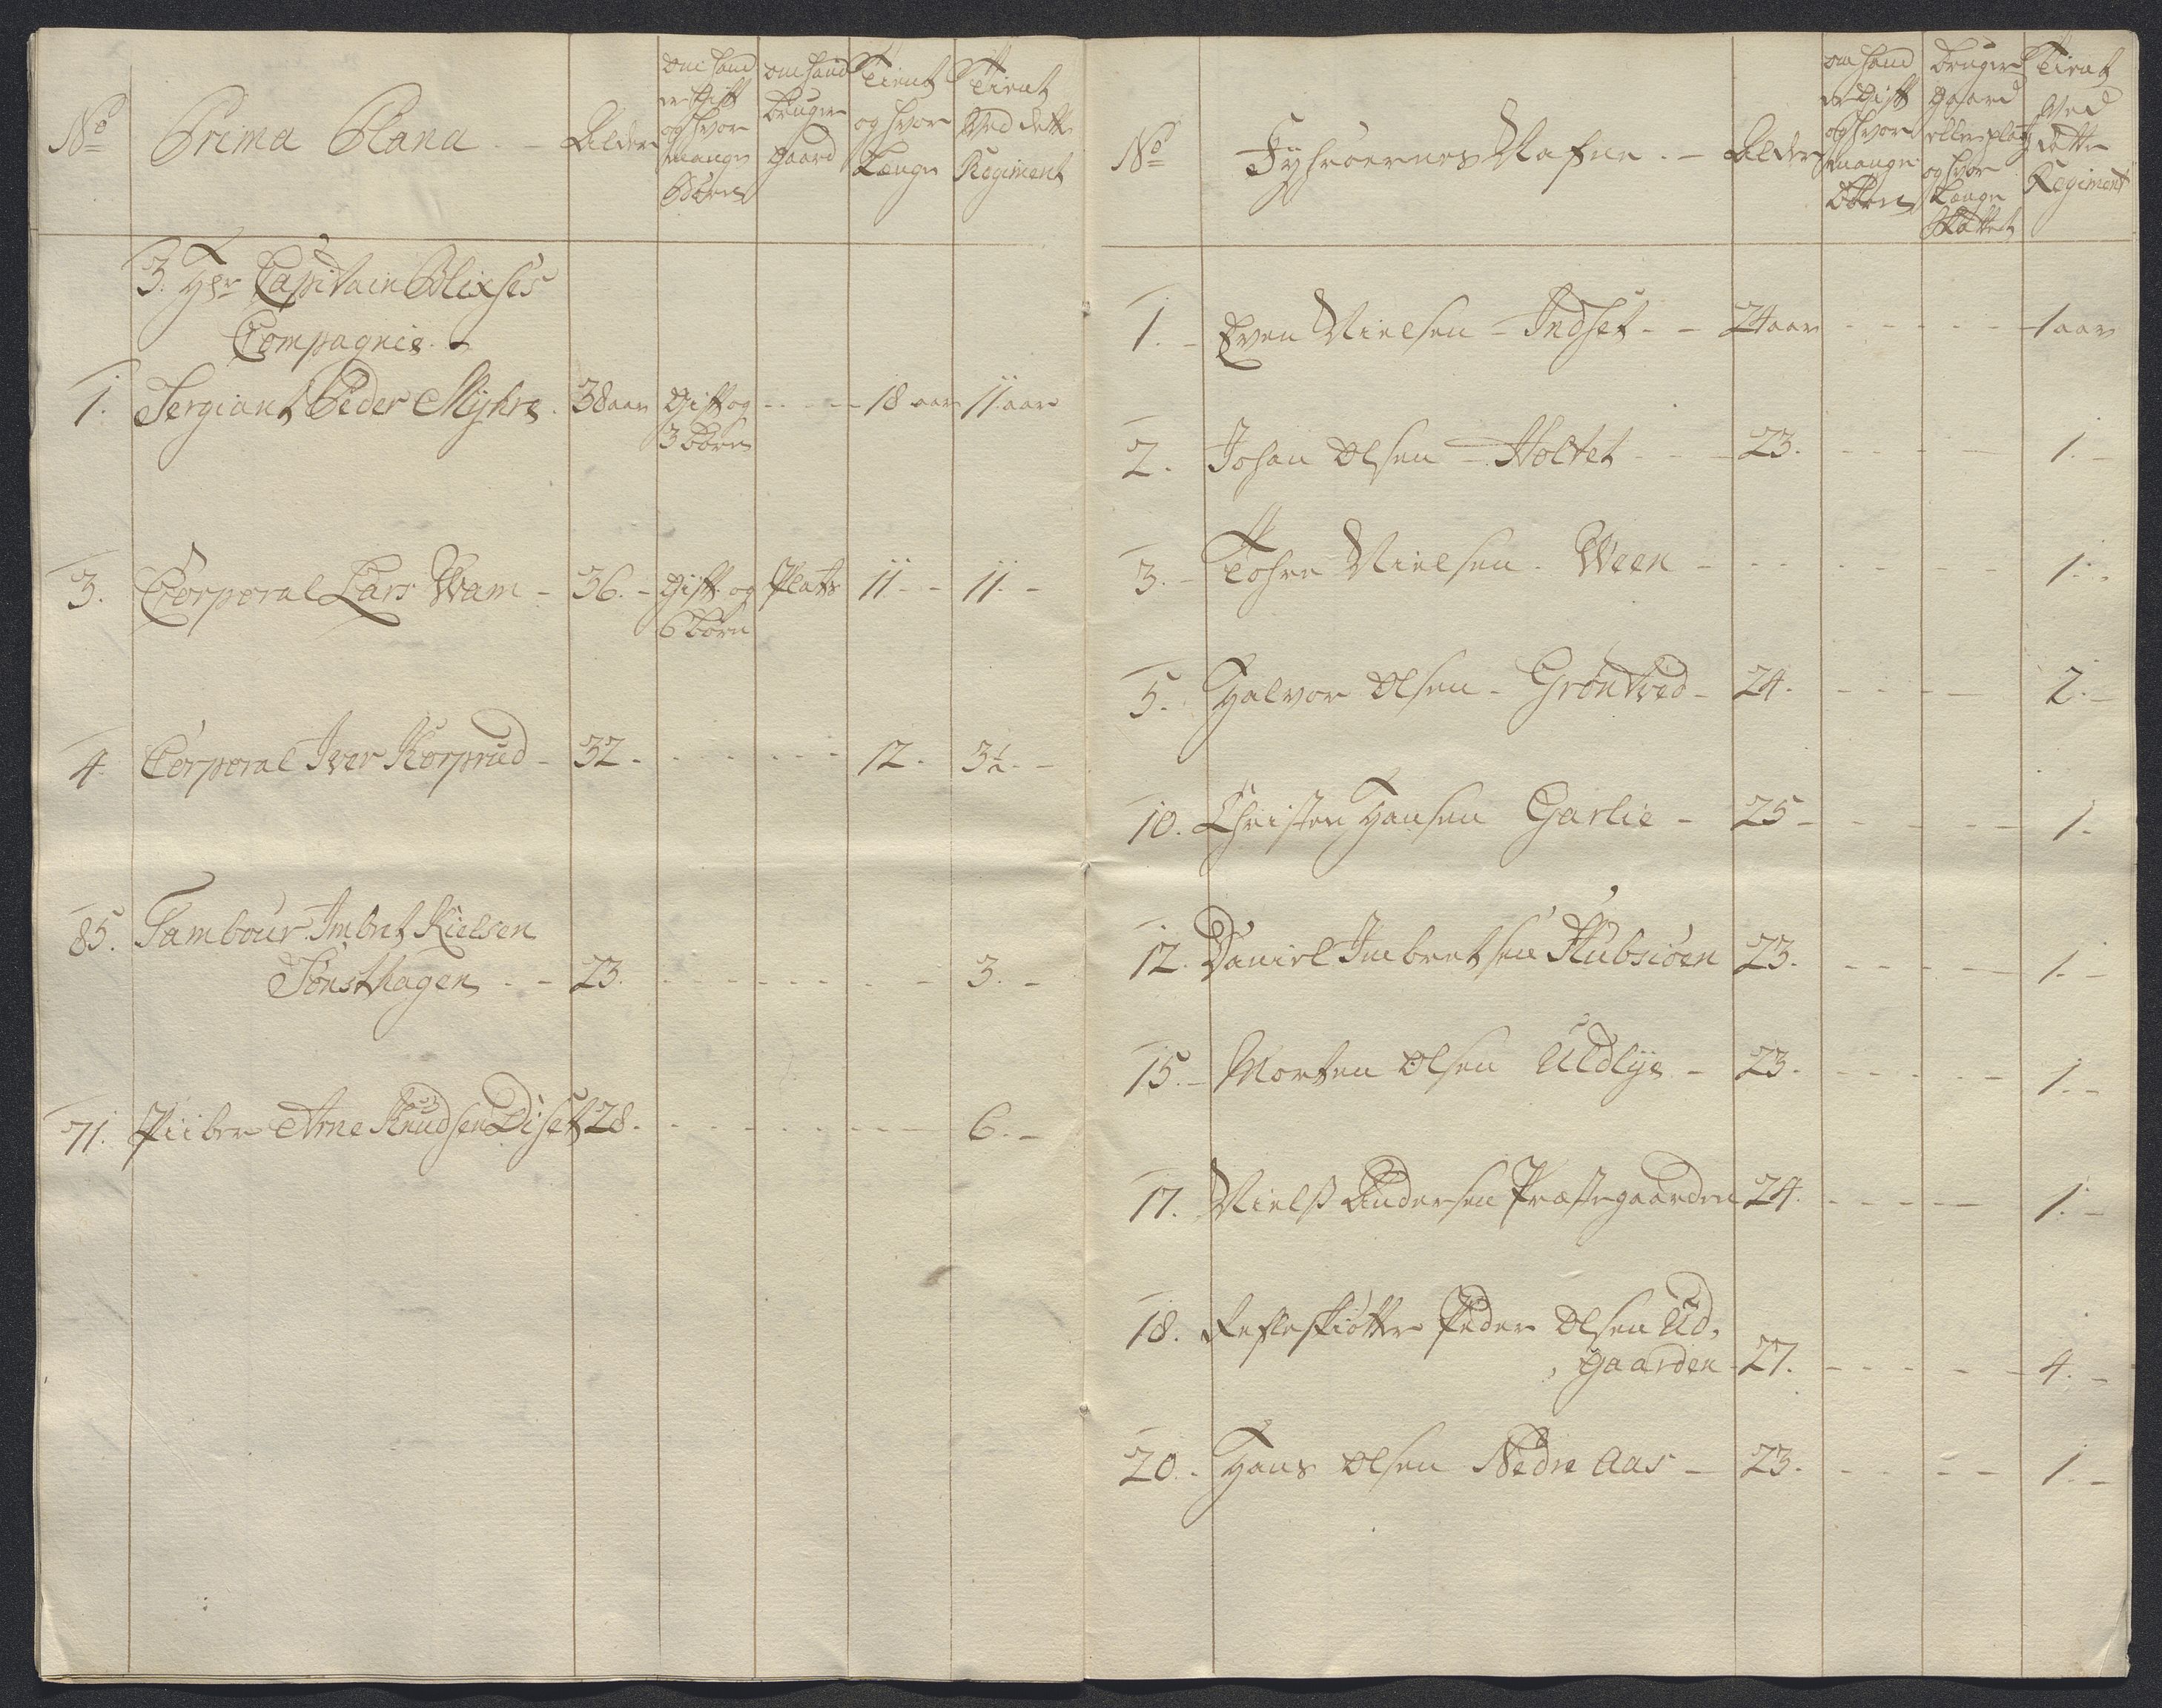 No Prima Plana. - Alder
om hand er Gift og hvor mange Börn
om hand bruger Gaard
Tient og hvor Længe
Tient Ved dette Regiment
3. Hr Capitain Blixses
Compagnie.
1. Sergiant Peder Myhre. 38 aar Gift og - - - - 18 aar 11 aar
3 Börn
3. Corporal Lars Wam - 36. - Gift og Plads 11 - - 11. -
6 börn
4. Corporal Iver Korprud - 32 - - - - - - - 12. 3½. -
85. Tambour Imbret Nielsen
Tönsthagen - - 23. - - - - - - - - 3. -
71. Piiber Arne Knudsen Diset 28. - - - - - - - - 6. -
No Fyhroernes Nafne. - Alder
om hand er Gift og hvor mange Börn
bruger Gaard eller plads og hvor Længe
Tient Ved dette Regiment
1. - Even Nielsen - Indset - - 24 aar - - - - - 1 aar
2. Johan Olsen - Holtet - - - 23. - - - - 1. -
3. - Tohre Nielsen. Ween - - - - - - - 1. -
5. Halvor Olsen - Gröntved - 24. - - - - 2. -
10. Christen Hansen Garlie - 25 - - - - - 1. -
12. Daniel Imbretsen Kubsiöen 23. - - - - 1. -
15. - Morten Olsen Uldlye - 23. - - - - - 1. -
17. Niels Andersen Præstegaarden 24. - - - - 1. -
18. Peder Olsen Ud,
, gaarden - 27. - - - - - 4. -
20. - Hans Olsen Nedre Aas - 23. - - - - 1. -